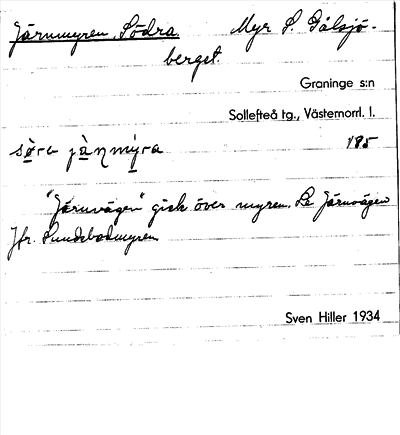 Järnmyren, Södra. Myr S. Gålsjö-
berget.
Graninge s:n
Sollefteå tg., Västernorrl. l.
sø̀ra jàṇmýra 185
"Järnvägen" gick över myren. Se Järnvägen
Jfr. Sundsbodmyren
Sven Hiller 1934